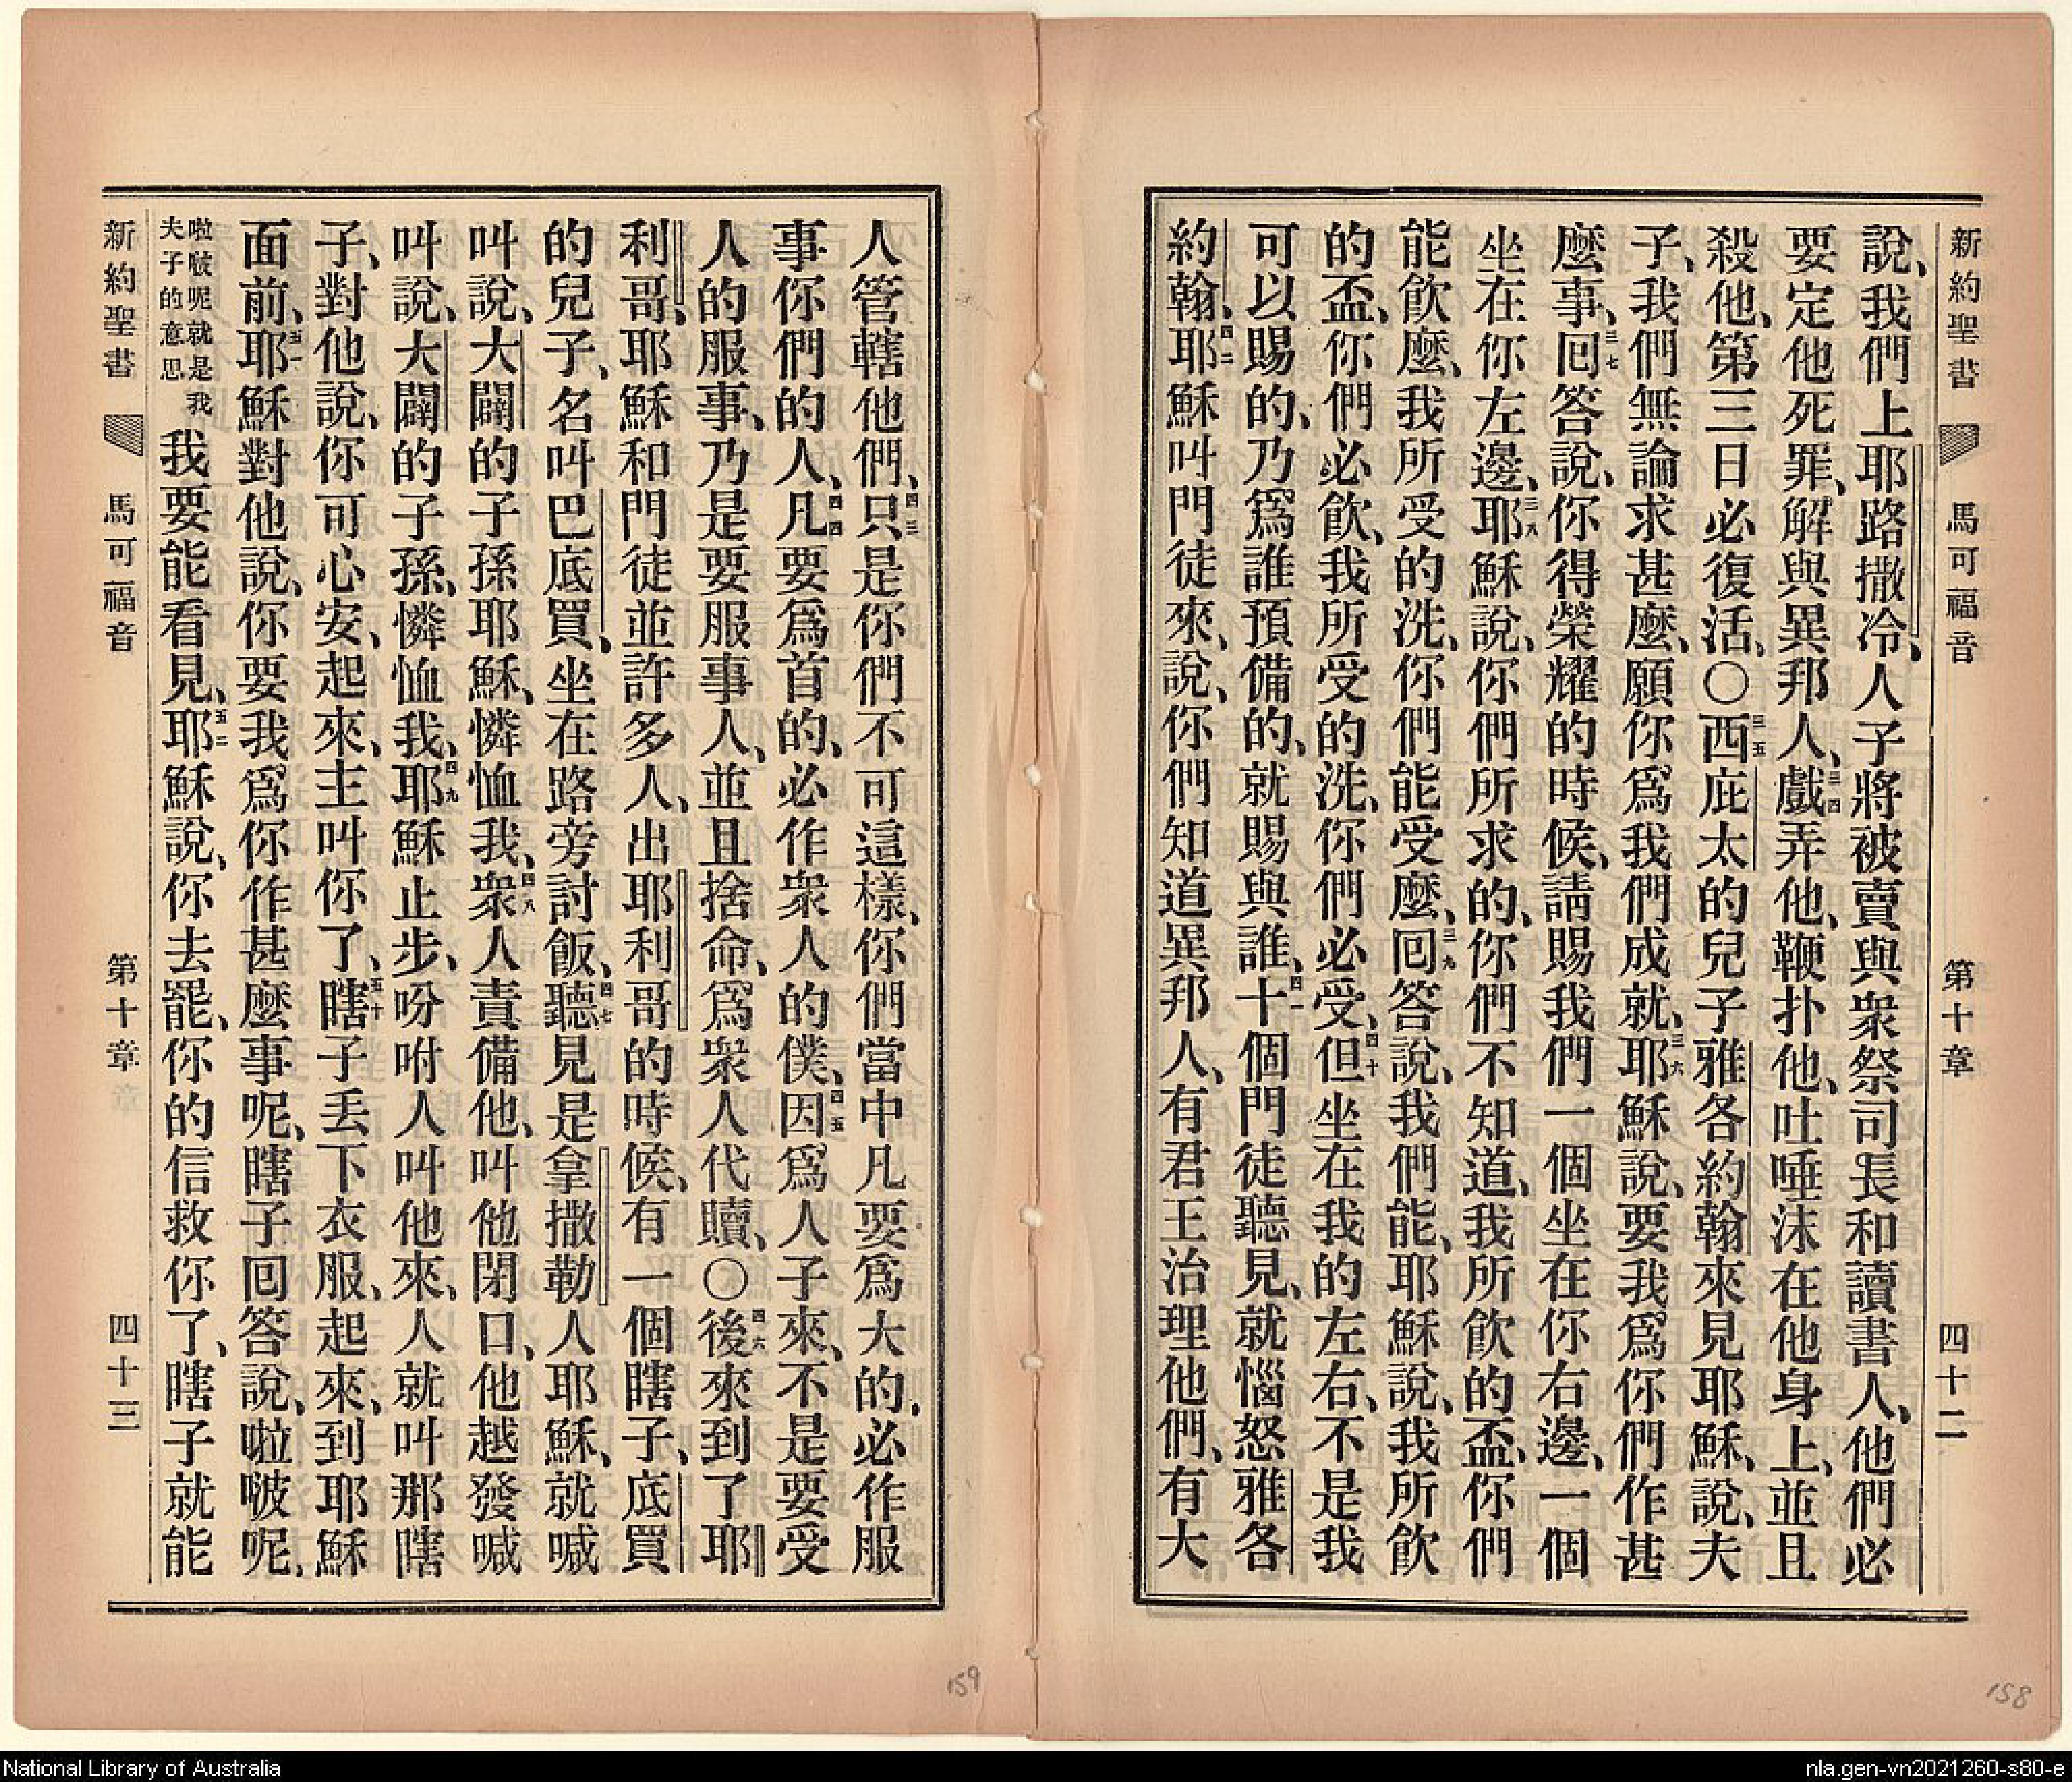 新約聖書　馬可福音　第十章　四十二
說、我們上耶路撒冷、人子將被賣與衆祭司長和讀書人、他們必
要定他死罪、解與異邦人、三四戲弄他、鞭扑他、吐唾沫在他身上、並且
殺他、第三日必復活、〇三五西庇太的兒子雅各約翰來見耶穌、說、夫
子、我們無論求甚麼、願你爲我們成就、三六耶穌說、要我爲你們作甚
麼事、三七回答說、你得榮耀的時候、請賜我們一個坐在你右邊、一個
坐在你左邊、三八耶穌說、你們所求的、你們不知道、我所飲的盃、你們
能飲麼、我所受的洗、你們能受麼、三九回答說、我們能、耶穌說、我所飲
的盃、你們必飲、我所受的洗、你們必受、四十但坐在我的左右、不是我
可以賜的、乃爲誰預備的、就賜與誰、四一十個門徒聽見、就惱怒雅各
約翰、四二耶穌叫門徒來、說、你們知道異邦人、有君王治理他們、有大
人管轄他們、四三只是你們不可這樣、你們當中凡要爲大的、必作服
事你們的人、四四凡要爲首的、必作衆人的僕、四五因爲人子來、不是要受
人的服事、乃是要服事人、並且捨命、爲衆人代贖、〇四六後來到了耶
利哥、耶穌和門徒並許多人、出耶利哥的時候、有一個瞎子、底買
的兒子、名叫巴底買、坐在路旁討飯、四七聽見是拿撒勒人耶穌、就喊
叫說、大闢的子孫耶穌、憐恤我、四八衆人責備他、叫他閉口、他越發喊
叫說、大闢的子孫、憐恤我、四九耶穌止步、吩咐人叫他來、人就叫那瞎
子、對他說、你可心安、起來、主叫你了、五十瞎子丟下衣服、起來、到耶穌
面前、五一耶穌對他說、你要我爲你作甚麼事呢、瞎子回答說、啦啵呢、
啦啵呢就是我夫子的意思　我要能看見、五二耶穌說、你去罷、你的信救你了、瞎子就能
新約聖書　馬可福音　第十章　四十三
159
158
National Library of Australia
nla.gen-vn2021260-s80-e